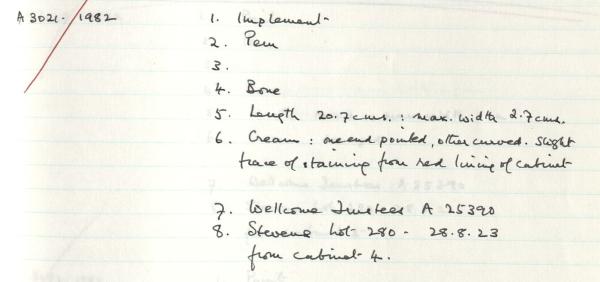 A 3021. / 1982 1. Implement
2. Peru
3.
4. Bone
5. Length 20.7 cms. : max. width 2.7 cms.
6. Cream : one end pointed, other curved. Slight
trace of staining from red lining of cabinet
7. Wellcome Trustees A 25390
8. Stevens Lot 280 - 28.8.23
from cabinet 4.